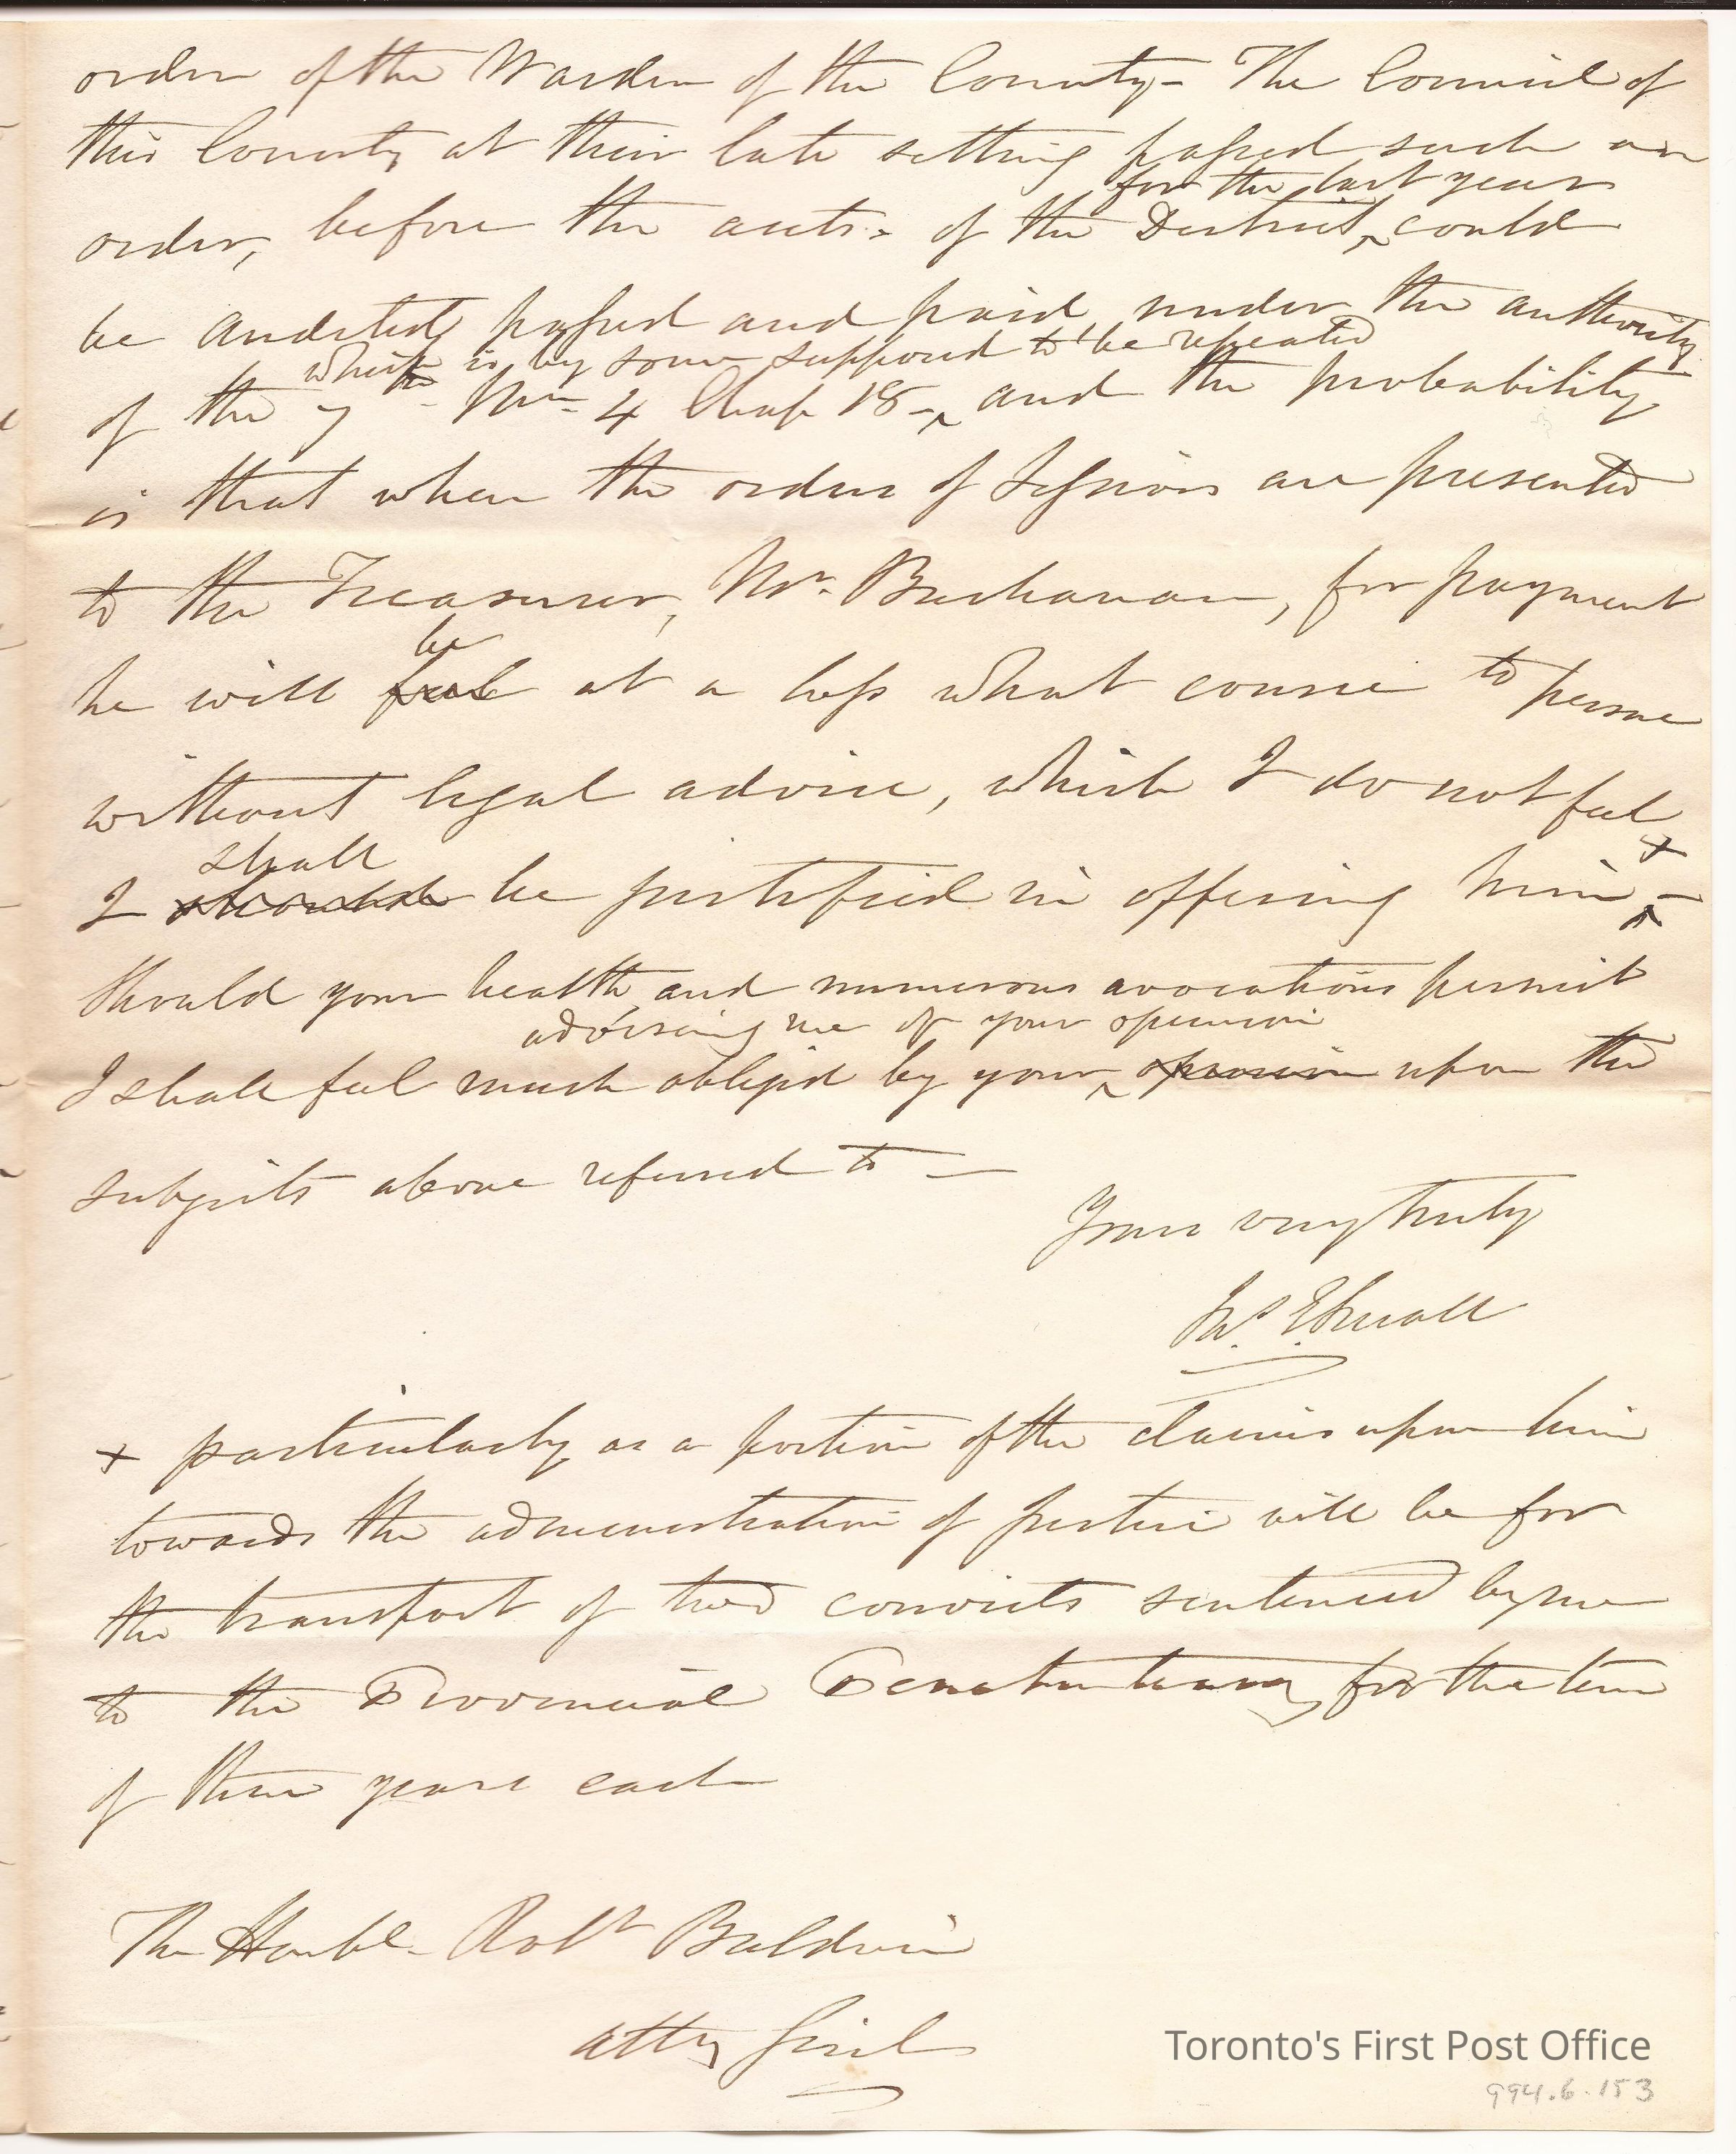 order of the Warden of the County - The Council of
this County at their late setting passed such an
for the last year
order, before the accts. of the District ^ could
be audited, passed and paid under the authority
which is by some supposed to be repealed
of the 7th Wm 4 Chap 18 - ^ and the probability
is that when the orders of Sessions are presented
to the Treasurer, Mr. Buchanan, for payment
be
he will feel at a loss what course to persue
without legal advice, which I do not feel
shall +
I should be justified in offering him ^ -
Should your health and numerous avocations permit
advising me of your opinion
I shall feel much obliged by your ^ opinion upon the
subjects above referred to -
Yours very truly
Jas. E. Small
+ particularly as a portion of the claims upon him
towards the administration of justice will be for
the transport of two convicts sentenced by me
to the Provincial Penetentiary for the term
of three years each
The Honble. Robt Baldwin
Atty Genl
Toronto's First Post Office
994.6.153